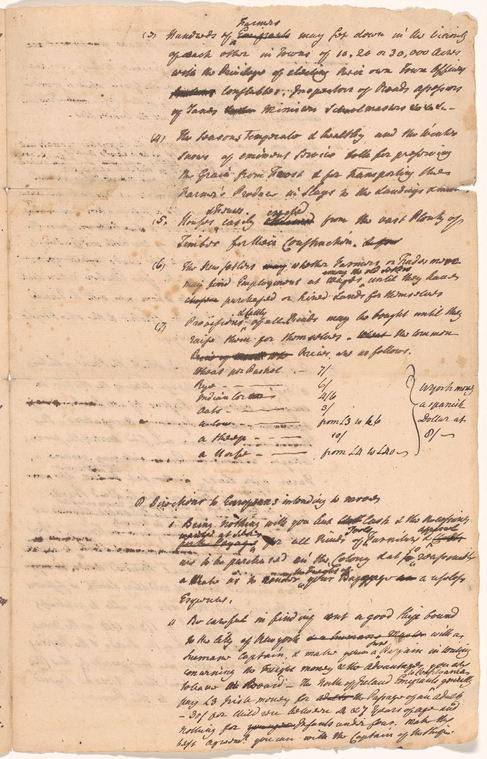 Farmers
(3) Hundreds of Emigrants may set down in the Vicinity
of each other in Towns of 10, 20 or 30,000 Acres
with the Privilege of electing their own Town Officers
Constables, Inspectors of Roads assessors
of Taxes Ministers Schoolmasters &c &c. –
(4) The Seasons Temperate & healthy and the Winter
Snows of eminent Service both for preserving
the Grain from Frost & for transporting the
Farmer's Produce in Slays to the Landings
& Stores. erected
(5. Houses easily from the vast Plenty of
Timber for their Construction.
(6) The New Settlers whether Farmers or Tradesmen
among the old settlers
may find Employment at Wages, until they have
purchased or hired Lands for themselves
(7) Provisions of all Kinds may be bought until they
raise them for themselves. – the common
Prices are as follows.
Wheat pr Bushel – 7/
Rye – 6/
Indian Corn 4/6
Oats – 3/
a Cow – from £3 to £6
a Sheep – 10/
a Horse – from £4 to £40 –
N York money
a Spanish
Dollar at
8/ –
Directions to Europeans intending to remove
1. Bring nothing with you but Cash & the necessary
for all Kinds of Furniture &
are to be purchased in the Colony
as to render your Baggage a useless
Expence.
Be careful in finding out a good Ship bound
to the City of New York with a
humane Captain, & make your Bargain in Writing
concerning the Freight money & the advantages you are
to have – The North of Ireland Emigrants
pay £3 Irish money for the Passage of an adult
– 30/ for Children between & 7 years of age and
nothing for Infants under four. make the
best agreemt you can with the Captain of the Ship.